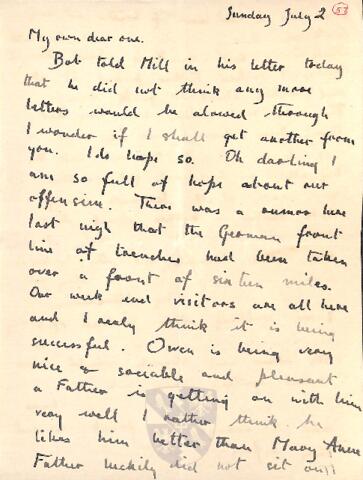 Sunday July 2 53
My own dear one.
Bob told Mill in his letter today
that he did not think any more
letters would be alowed through
I wonder if I shall get another from
you. I do hope so. Oh darling I
am so full of hope about our
offensive. There was a rumor here
last nigh that the German front
line of trenches had been taken
over a front of sixteen miles.
Our week end visitors are all here
and I realy think it is being
successful. Owen is being very
nice & sociable and pleasant
a Father is getting on with him
very well I rather think he
likes him better than Mary Anne
Father luckily did not sit